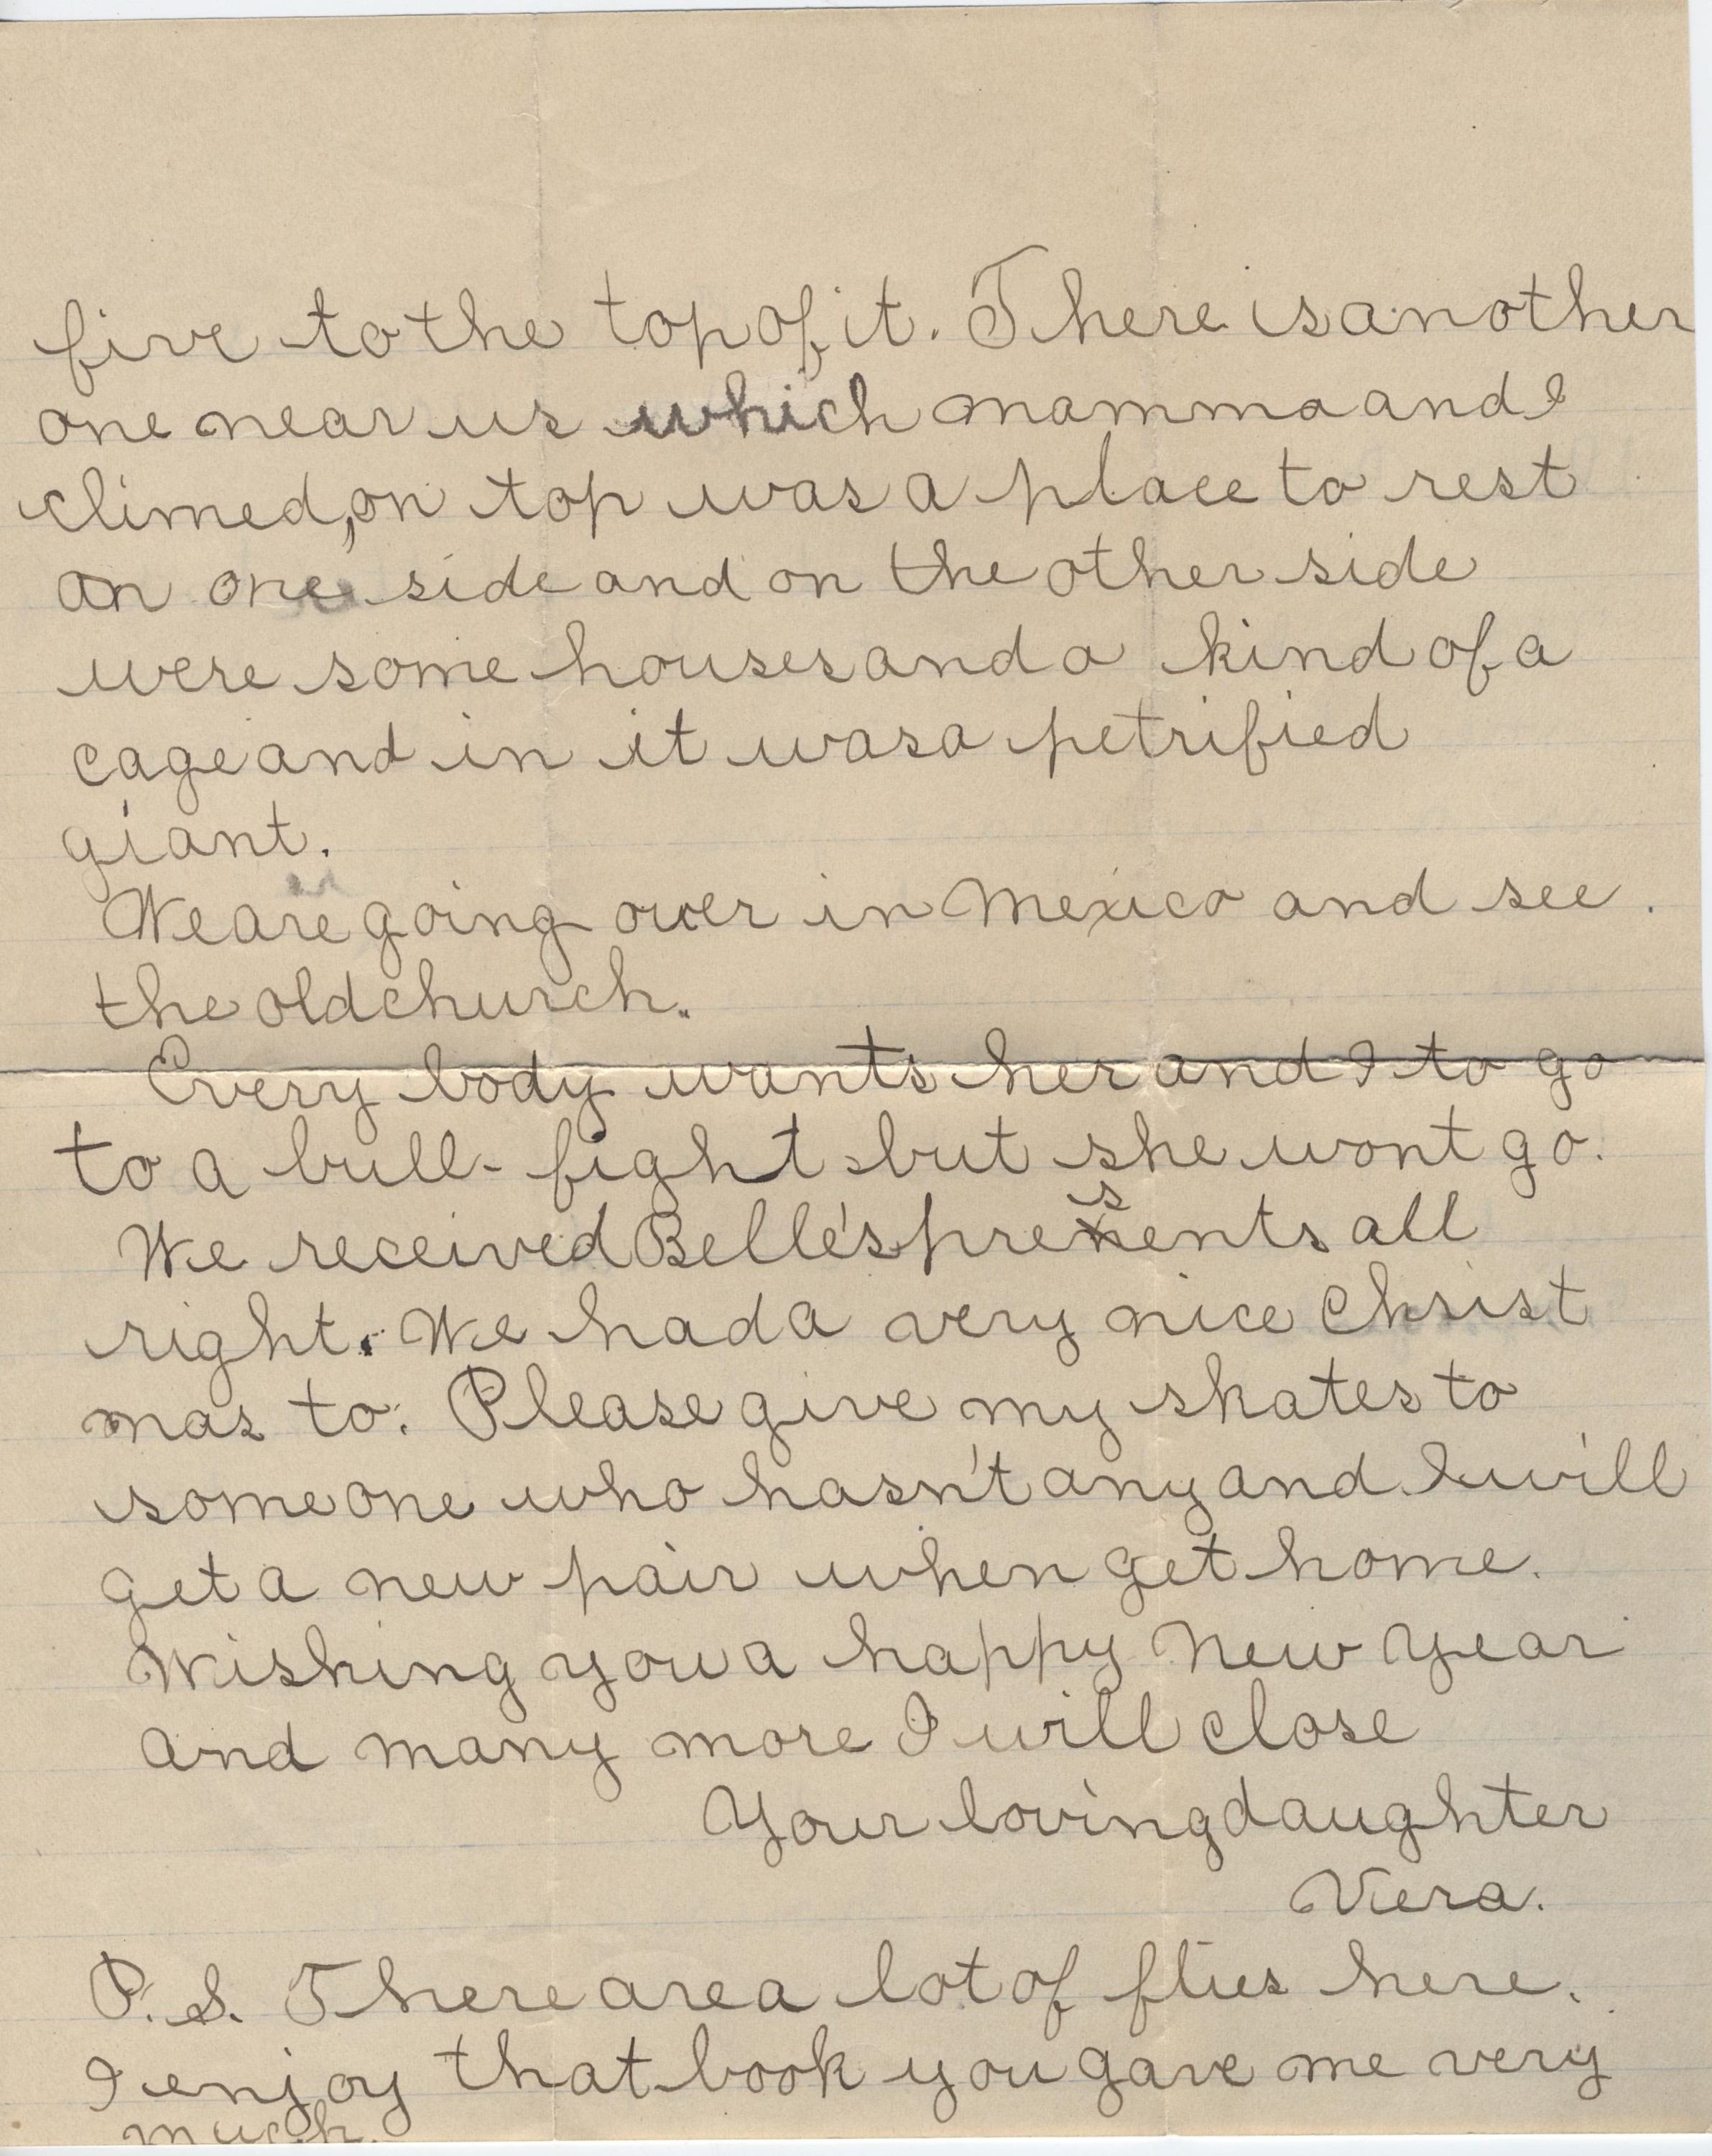 five to the top of it. There is another
one near us which mamma and I
climed, on top was a place to rest
on one side and on the other side
were some houses and a kind of a
cage and in it was a petrified
giant.
We are going over in Mexico and see
the old church.
Every body wants her and I to go
to a bull-fight but she wont go.
We received Belle's presents all
right. We had a very nice Christ
mas to. Please give my skates to
someone who hasn't any and I will
get a new pair when get home.
Wishing you a happy New Year
and many more I will close
Your loving daughter
Vera.
P.S. There are a lot of flies here.
I enjoy that book you gave me very
much.